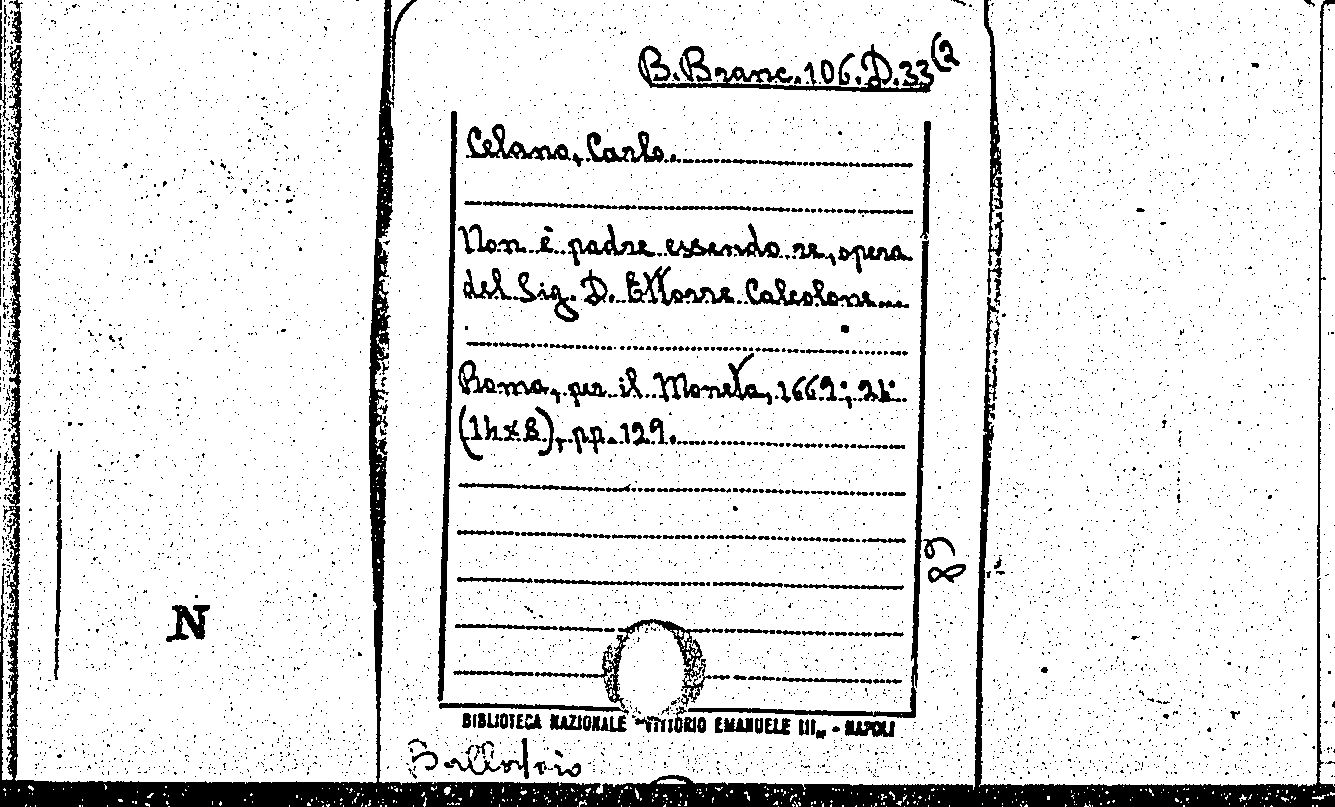 B. Branc. 106. D. 33 (2
Celano, Carlo.
Non è padre essendo re, opera
del Sig. D. Ettorre Calcolone...
Roma, per il Moneta, 1669; 24°
(14x8), pp. 129.
83
N
BIBLIOTECA NAZIONALE "VITTORIO EMANUELE III" - NAPOLI